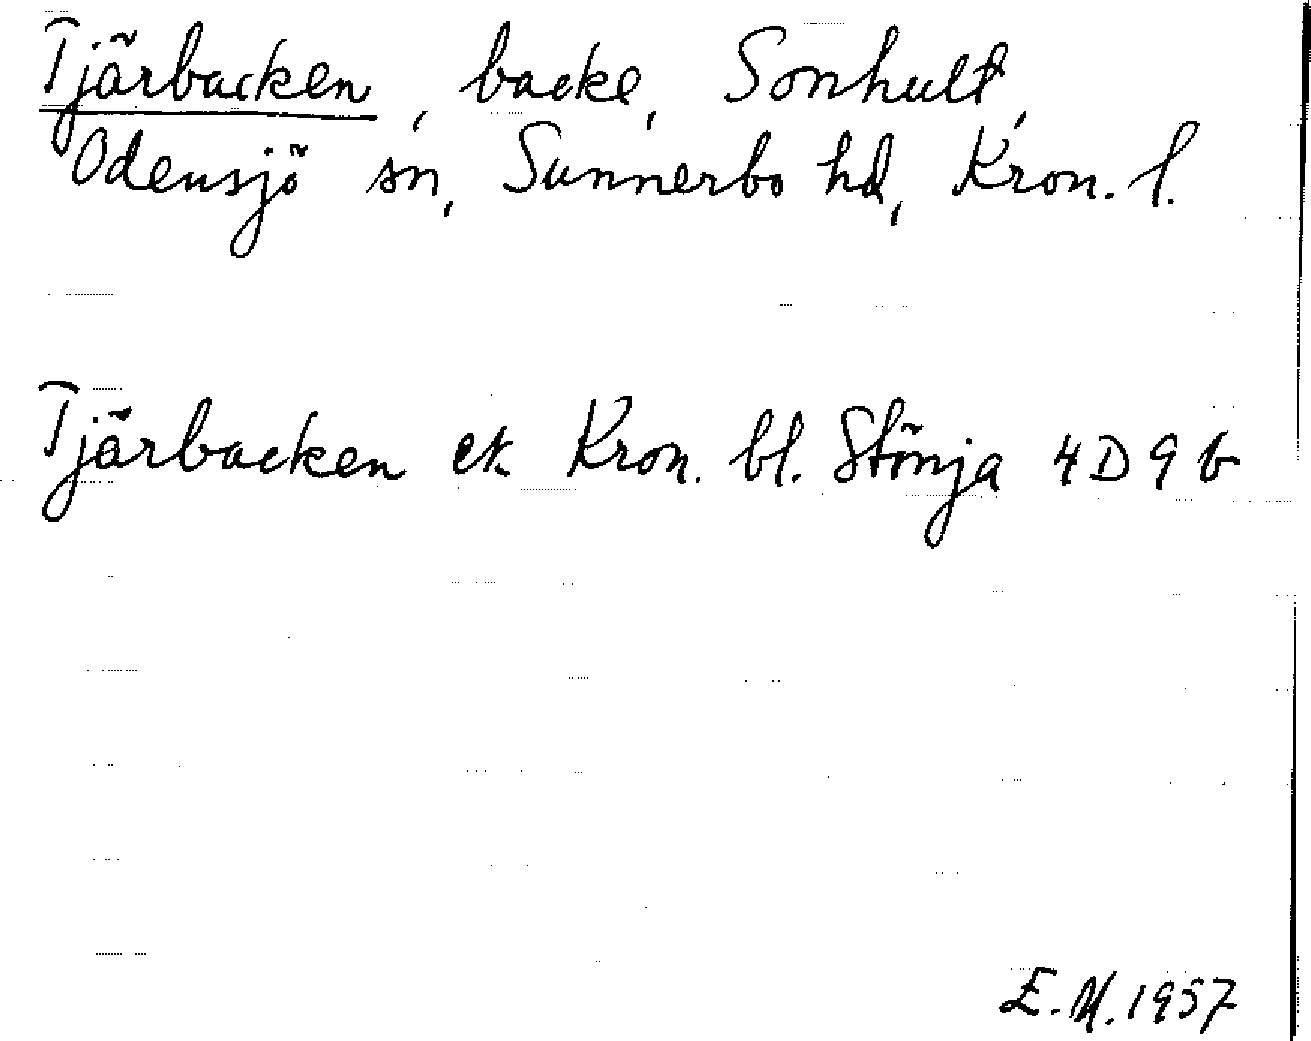 Tjärbacken, backe, Sonhult,
Odensjö sn, Sunnerbo hd, Kron. l.
Tjärbacken ek Kron. bl. Stönja 4D9b
E.M. 1957